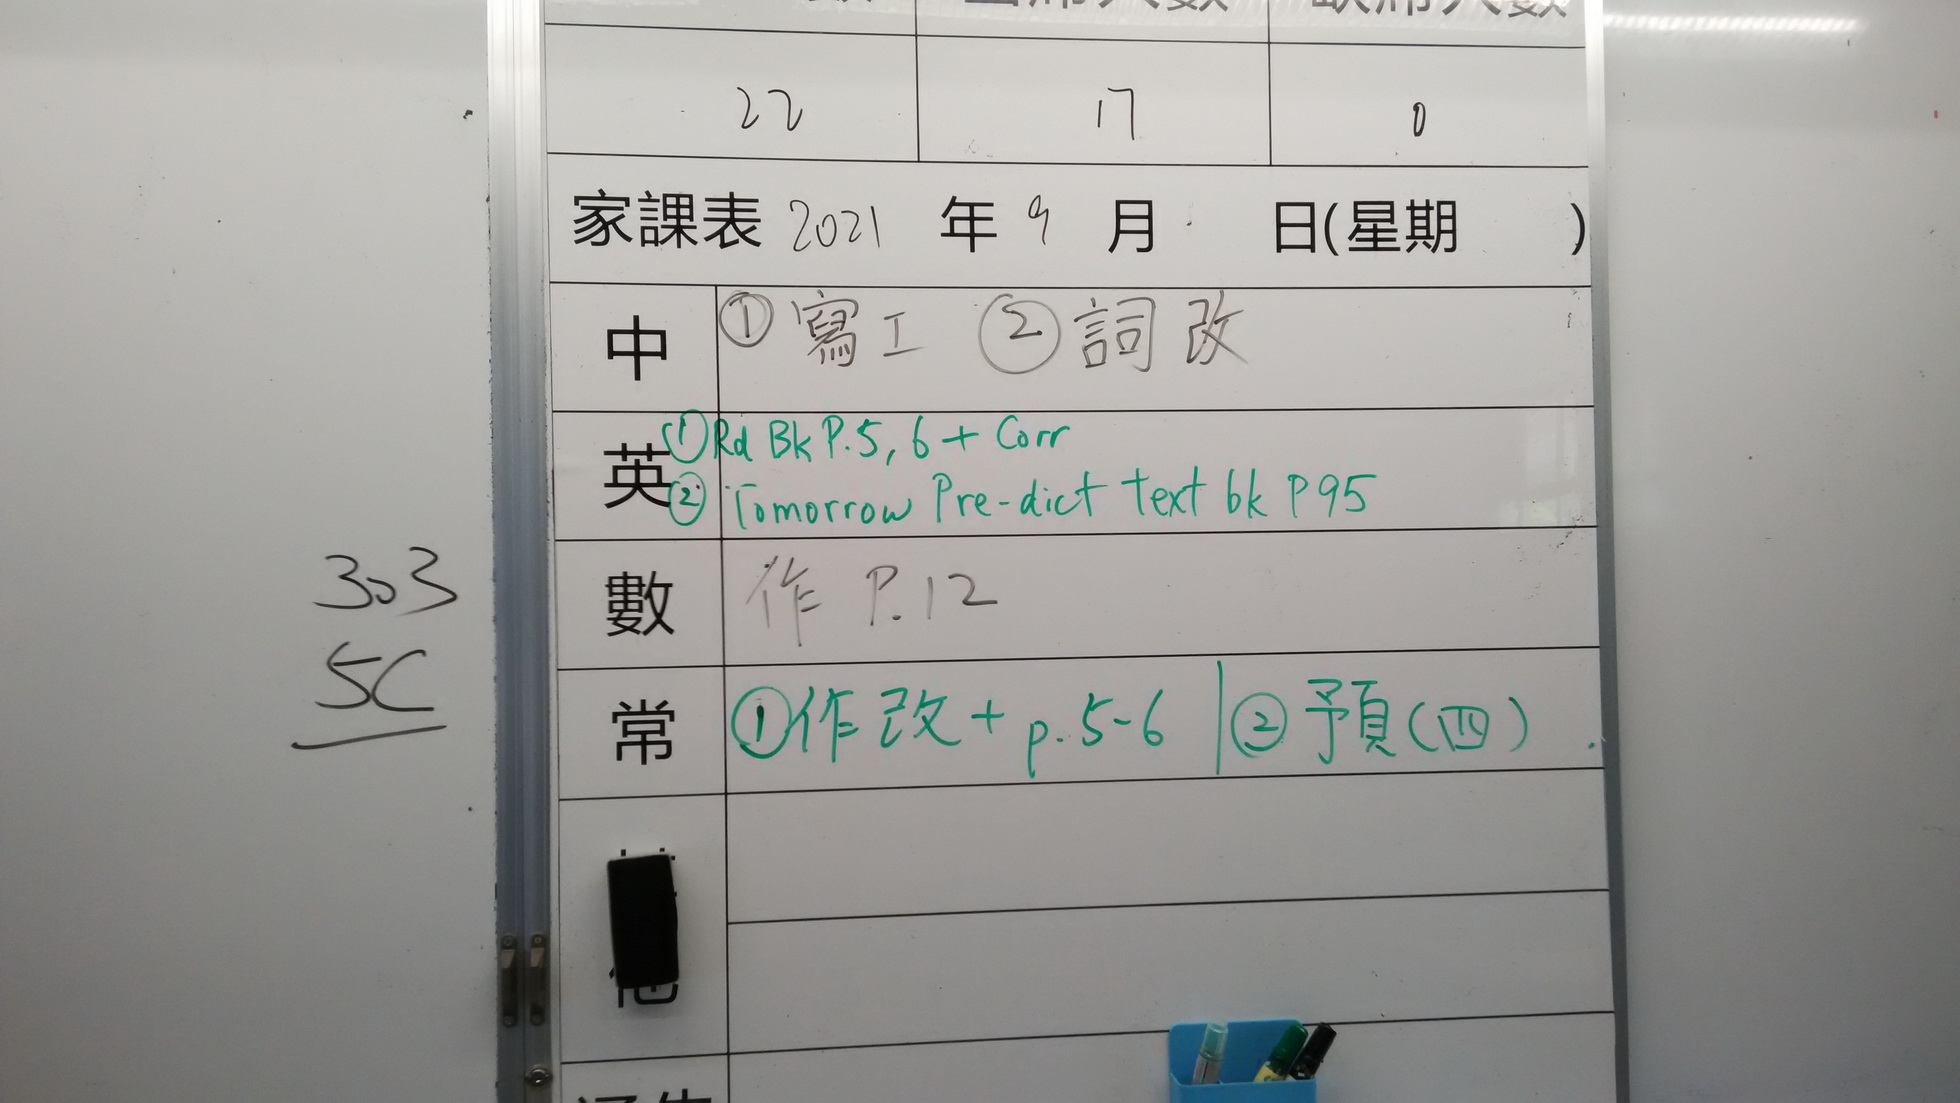 出席人數
缺席人數
22 17 0
家課表 2021 年 9 月 日(星期 )
中 ① 寫工 ② 詞改
英 ① Rd Bk P.5, 6 + Corr
② Tomorrow Pre-dict text bk P95
數 作 P.12
常 ① 作改 + p.5-6 | ② 預(四).
他
303
5C